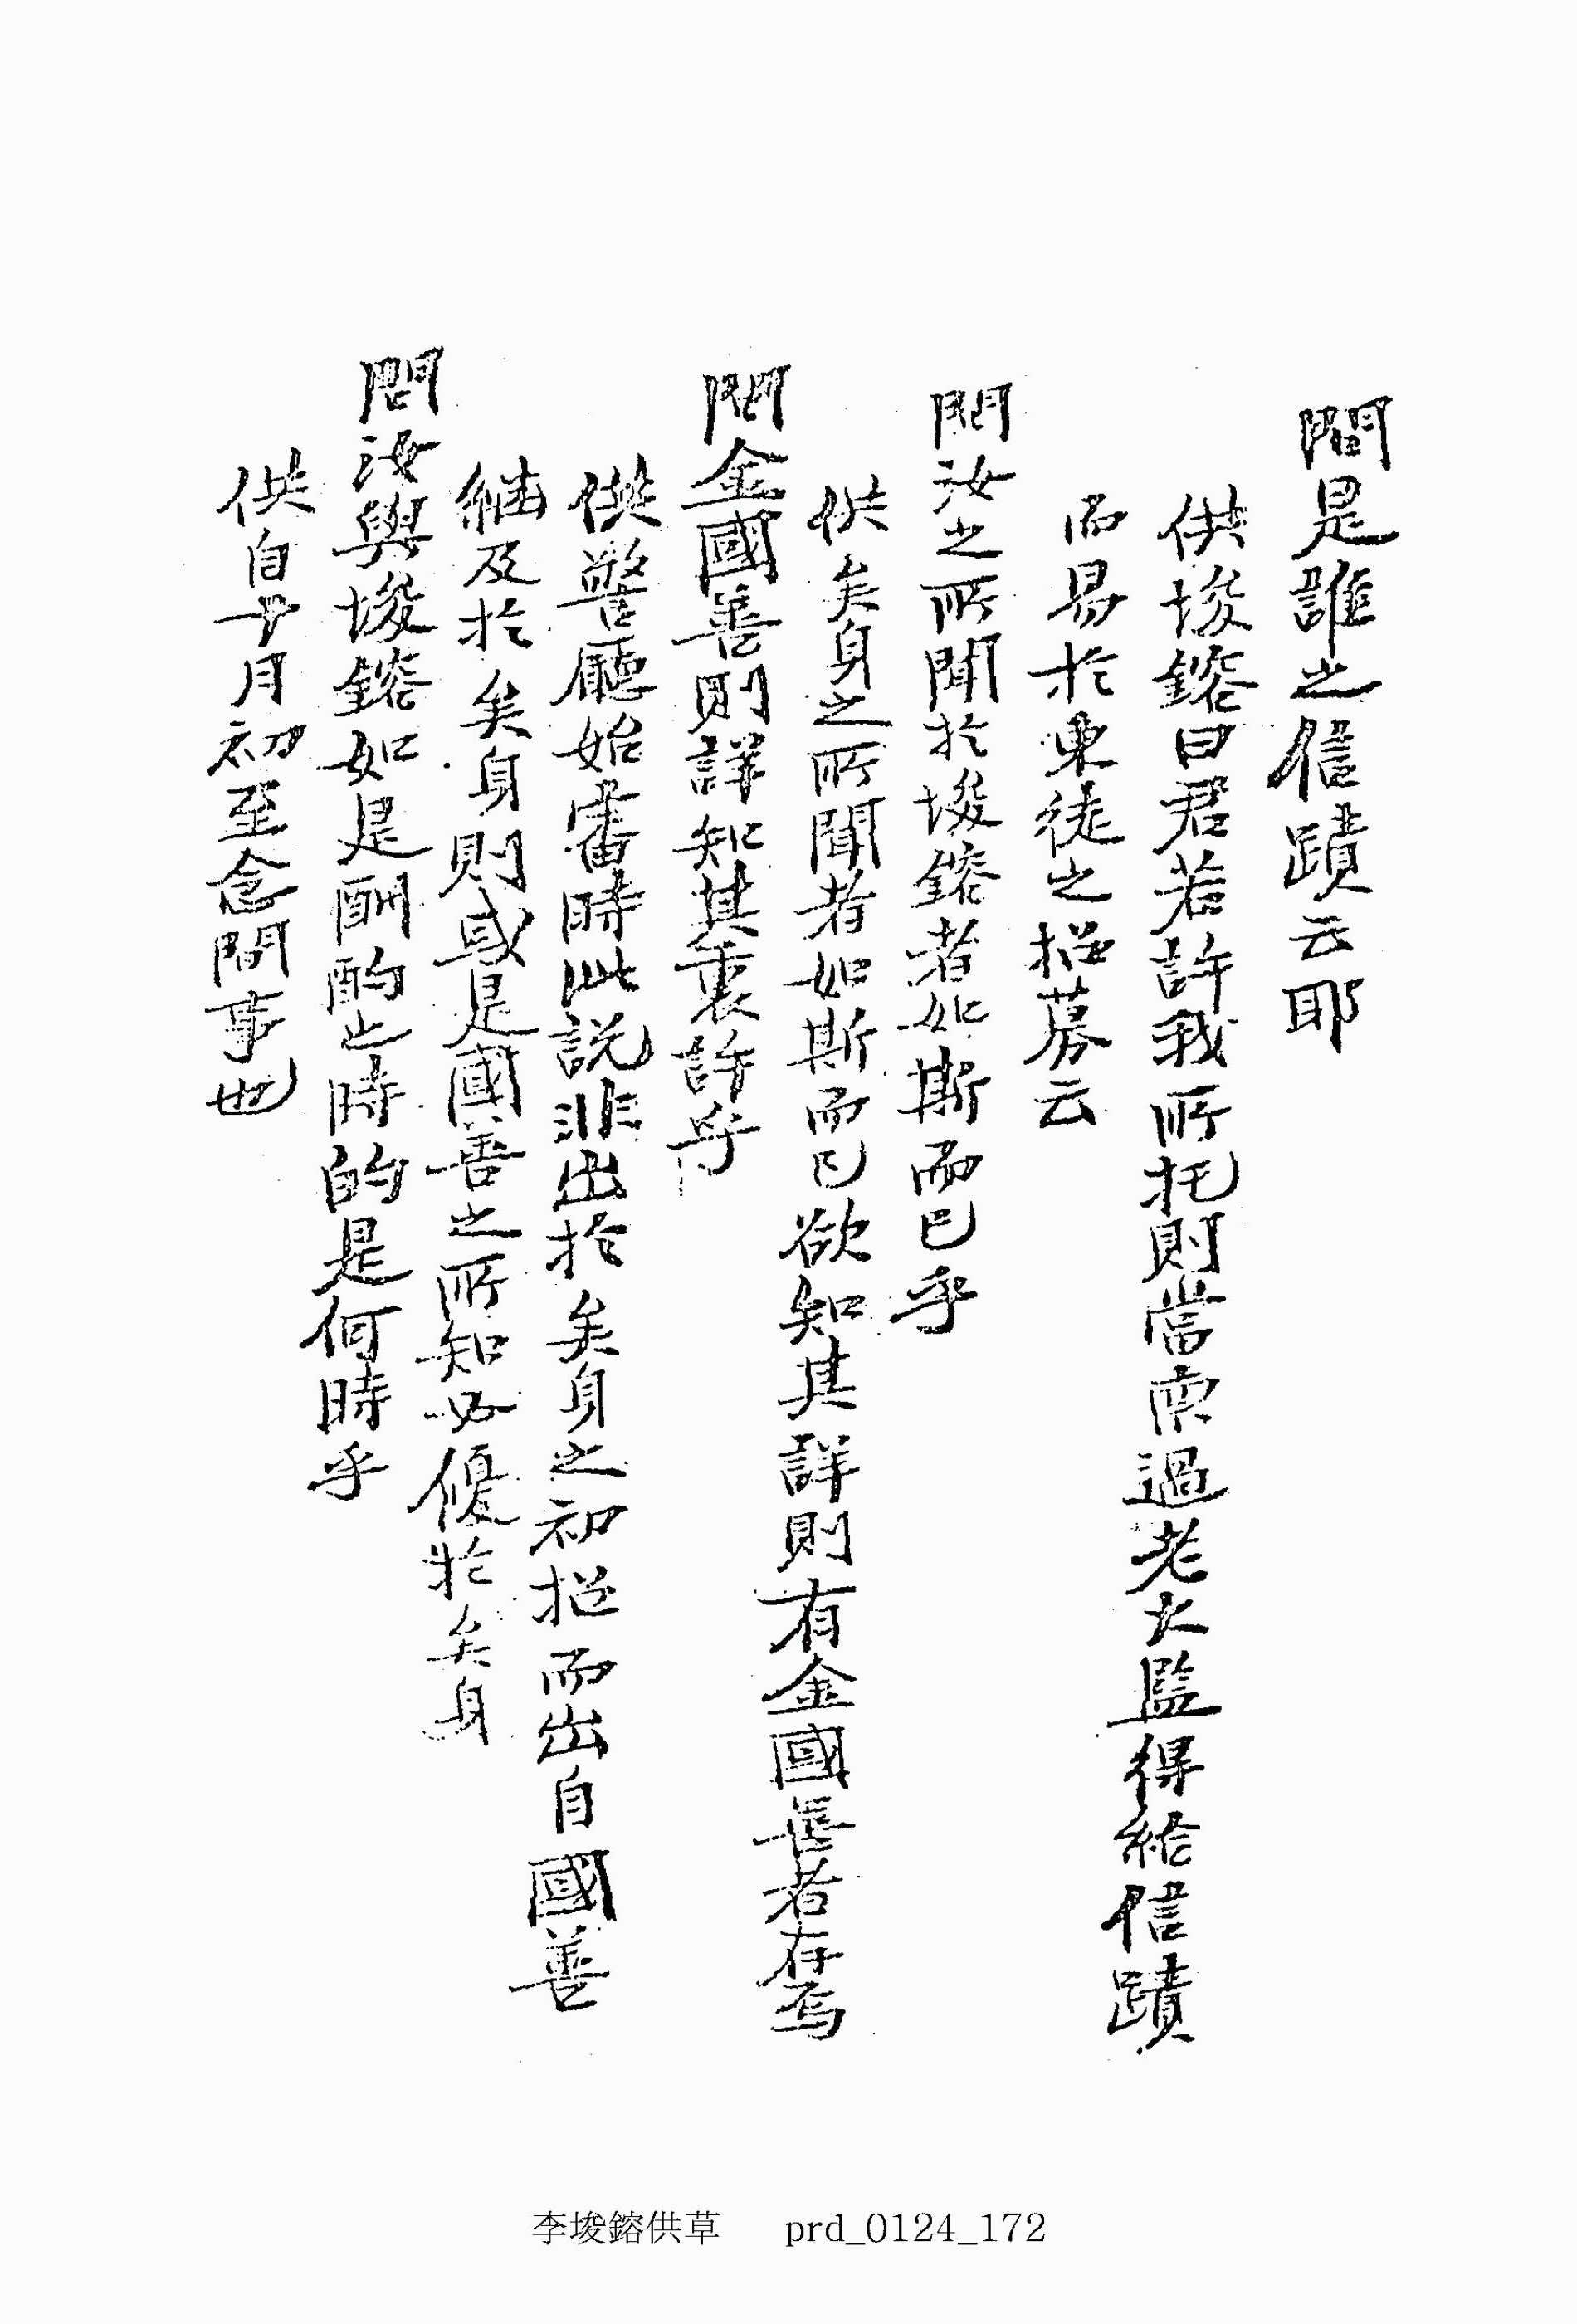 問是誰之信蹟云耶
供埈鎔曰君若許我所托則當禀過老大監得給信蹟
而易於東徒之招募云
問汝之所聞於埈鎔者如斯而已乎
供矣身之所聞者如斯而已欲知其詳則有金國善者存焉
問金國善則詳知其裏許乎
供警廳始審時此說非出於矣身之初招而出自國善
繼及於矣身則或是國善之所知必優於矣身
問汝與埈鎔如是酬酌之時的是何時乎
供自十月初至念間事也
李埈鎔供草 prd_0124_172